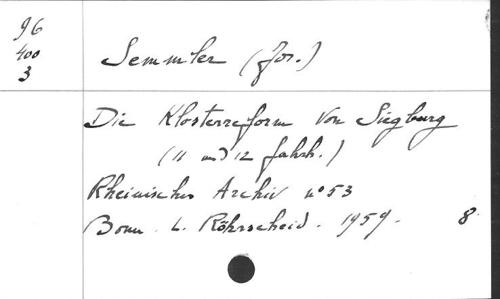 96
400
3
Semmler (Jos.)
Die Klosterreform von Siegburg
(11 und 12 Jahrh.)
Rheinisches Archiv n° 53
Bonn. L. Röhrscheid. 1959. 8.